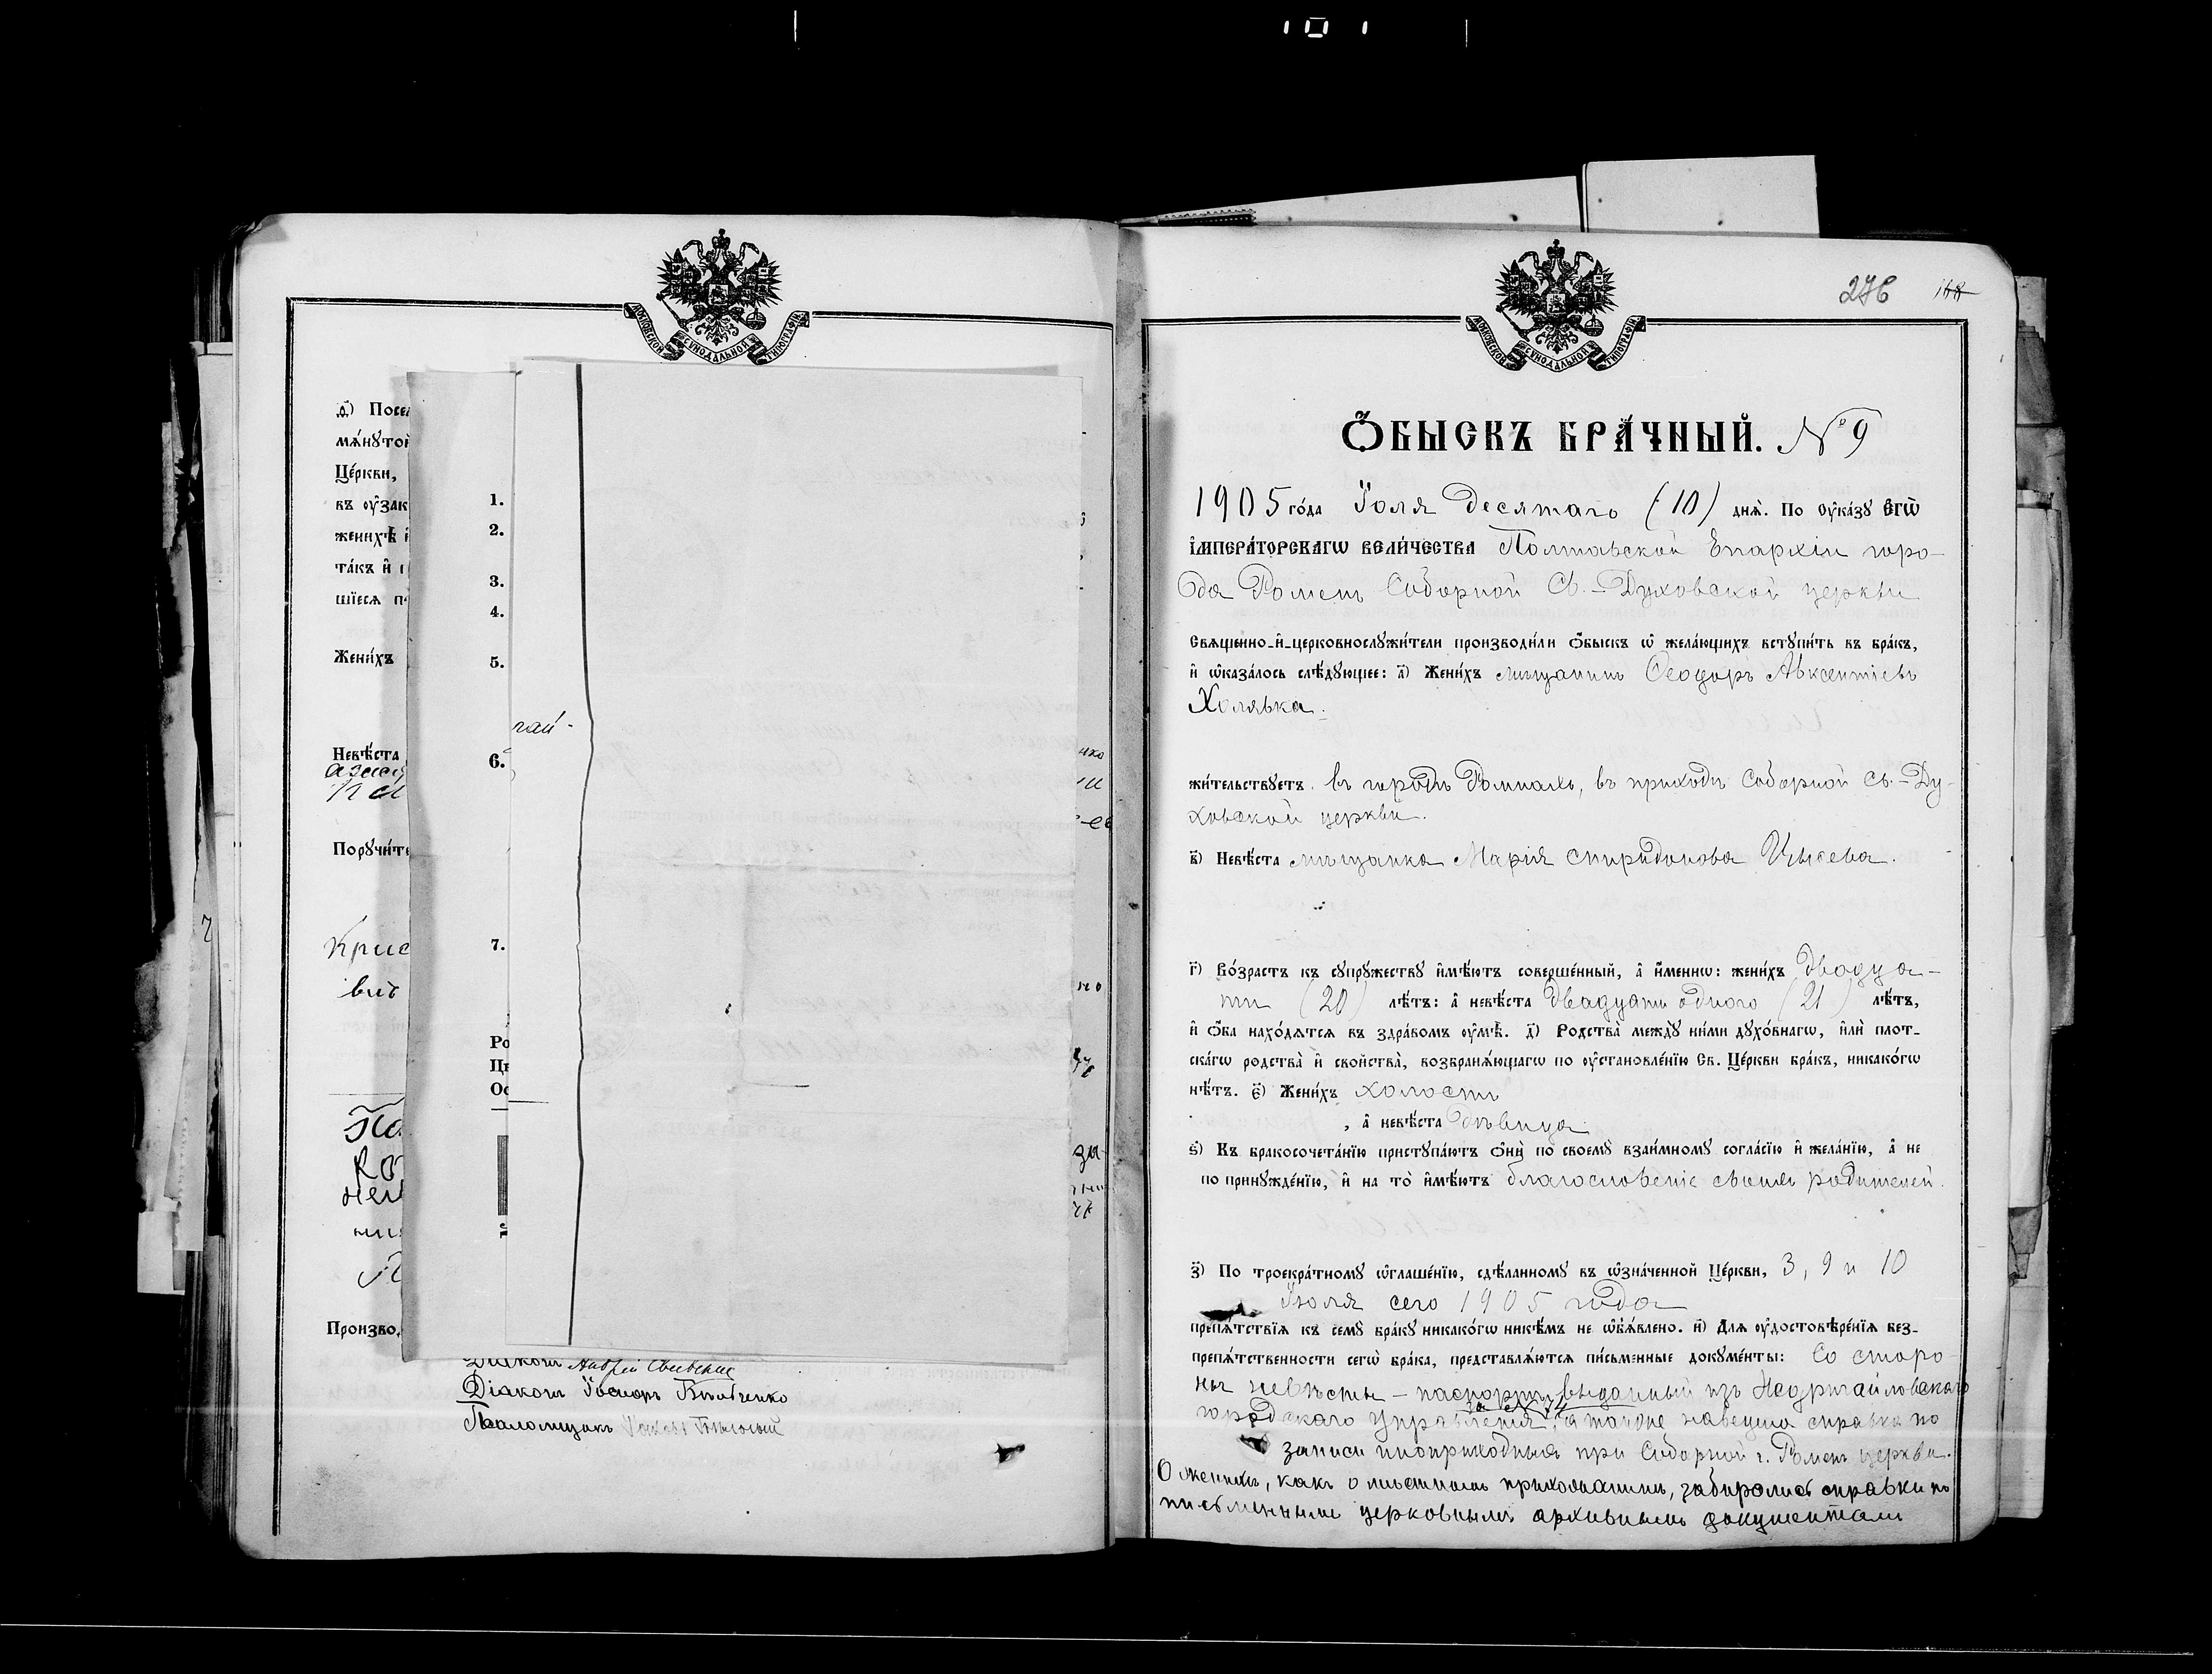 101
МОСКОВСКОЙ СѴНОДАЛЬНОЙ ТИПОГРАФІИ
д҃) Посл
мѧнутой
Це́ркви,
въ оу҆зак
женихѣ и҆
та́къ и҆ г
шїесѧ п
Жени́хъ
Невѣ́ста
Поручи́те
Крис
Произво
1.
2.
3.
4.
5.
гай-
6.
7.
Ро
Цв
Ос
Діаконъ
Діаконъ Ѳеодоръ
Псаломщикъ
МОСКОВСКОЙ СѴНОДАЛЬНОЙ ТИПОГРАФІИ
276 168
Ѻ҆БЫСКЪ БРА́ЧНЫЙ. № 9
1905 го́да Іюля десятаго (10) днѧ̀. По оу҆ка́зу Є҆гѡ̀
И҆МПЕРА́ТОРСКАГѠ ВЕЛИ́ЧЕСТВА Полтавской Епархіи горо-
да Роменъ Соборной Св.-Духовской церкви
Свѧщенно-и҆-церковнослужи́тели производи́ли ѻ҆́быскъ ѡ҆ жела́ющихъ вступи́ть въ бра́къ,
и҆ ѡ҆каза́лось слѣ́дующее: а҃) Жени́хъ мѣщанинъ Ѳеодоръ Авксентіевъ
Холявка.
жи́тельствуетъ въ городѣ Ромнахъ, въ приходѣ Соборной Св.-Ду-
ховской церкви.
в҃) Невѣ́ста мѣщанка Марія Спиридонова
г҃) Во́зрастъ къ супру́жеству и҆мѣ́ютъ соверше́нный, а҆ и҆́менно: жени́хъ двадца-
ти (20) лѣ́тъ: а҆ невѣ́ста двадцати одного (21) лѣ́тъ,
и҆ ѻ҆́ба нахо́дѧтсѧ въ здра́вомъ оу҆мѣ̀. д҃) Родства̀ ме́жду ни́ми духо́внагѡ, и҆лѝ плот-
ска́гѡ родства̀ и҆ сво́йства̀, возбранѧ́ющагѡ по оу҆становле́нїю Св. Це́ркви бра́къ, никако́гѡ
нѣ́тъ. є҃) Жени́хъ холостъ
, а҆ невѣ́ста дѣвица
ѕ҃) Къ бракосочета́нїю приступа́ютъ ѻ҆нѝ по своему̀ взаи́мному согла́сїю и҆ жела́нїю, а҆ не
по принужде́нїю, и҆ на то̀ и҆мѣ́ютъ благословеніе своихъ родителей.
з҃) По троекра́тному ѡ҆глаше́нїю, сдѣ́ланному въ ѡ҆зна́ченной Це́ркви, 3, 9 и 10
Іюля сего 1905 года
препѧ́тствїѧ къ сему̀ бра́ку никако́гѡ никѣ́мъ не ѡ҆б̾ѧ́влено. и҃) Для оу҆достовѣре́нїѧ без-
препѧ́тственности сегѡ̀ бра́ка, представлѧ́ютсѧ пи́сьменные докуме́нты: Со сторо-
ны невѣсты - паспортъ, выданный изъ Недригайловскаго
городского Управленія, за № 74, а также наведена справка по
записи иноприходныхъ при Соборной г. Роменъ церкви.
О женихѣ, какъ о мѣстномъ прихожанинѣ, забирались справки по
письменнымъ церковнымъ архивнымъ документамъ